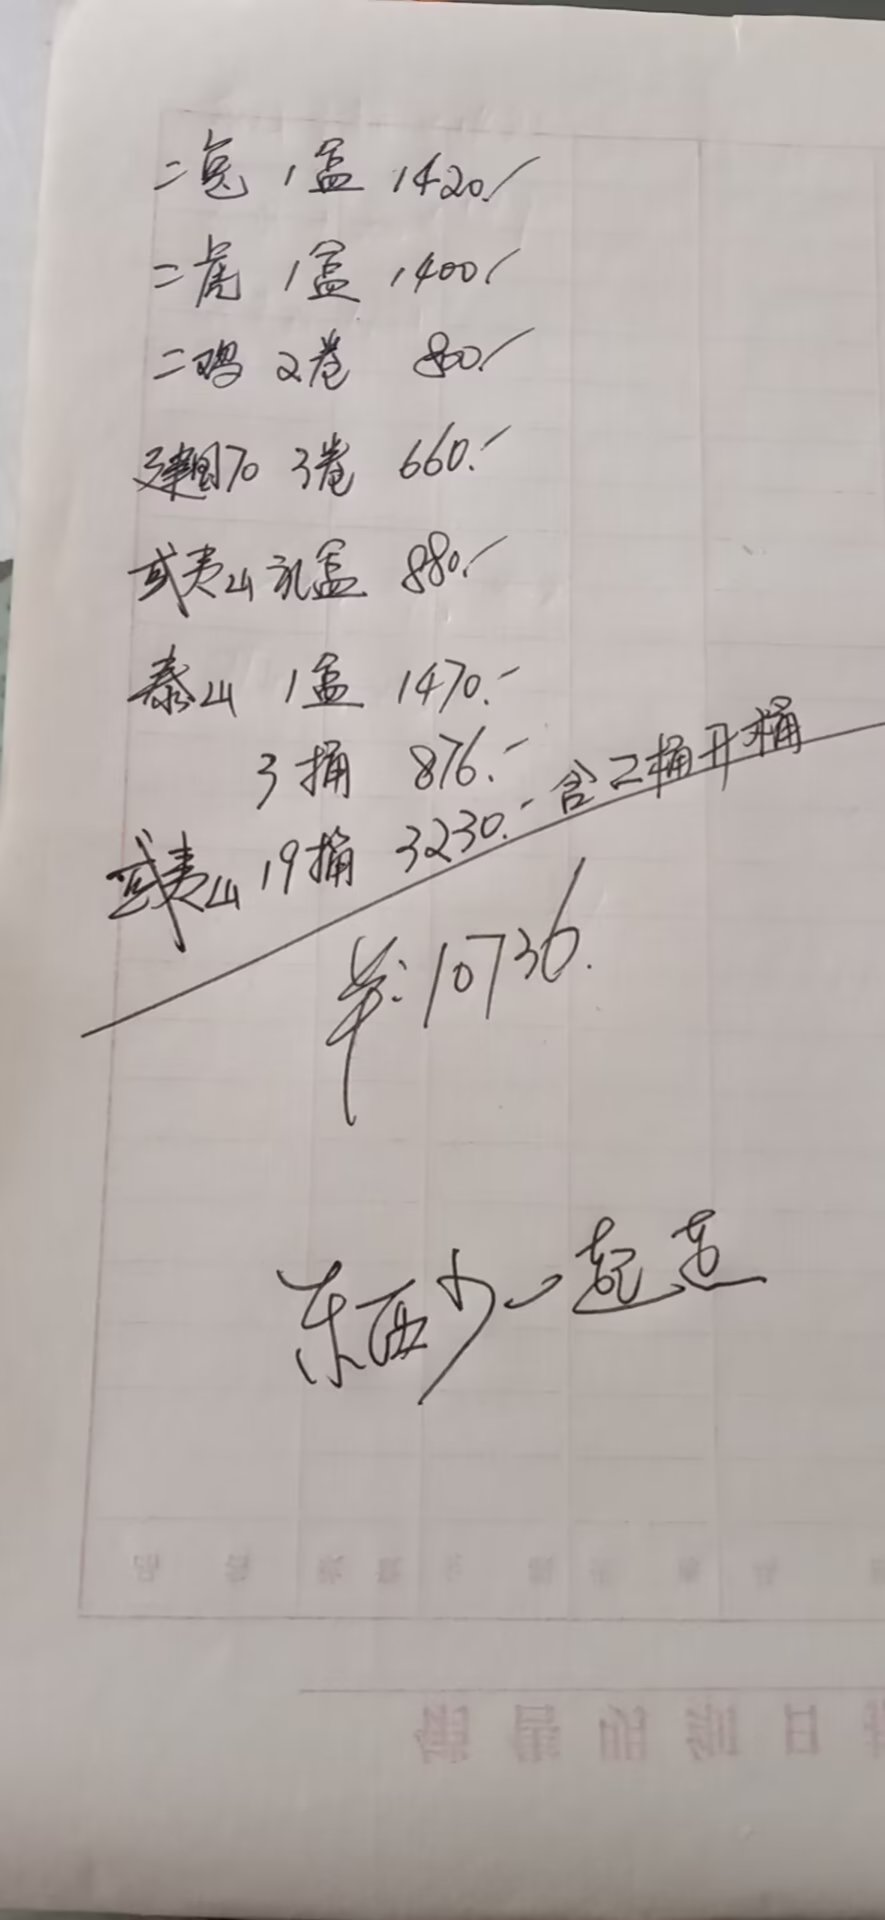 二兔 1盒 1420.-
二虎 1盒 1400.-
二鸡 2卷 800.-
建国70 3卷 660.-
武夷山礼盒 880.-
泰山 1盒 1470.-
3捅 876.-
武夷山 19捅 3230.- 含二桶开桶
羊:10736.
东西少一起走